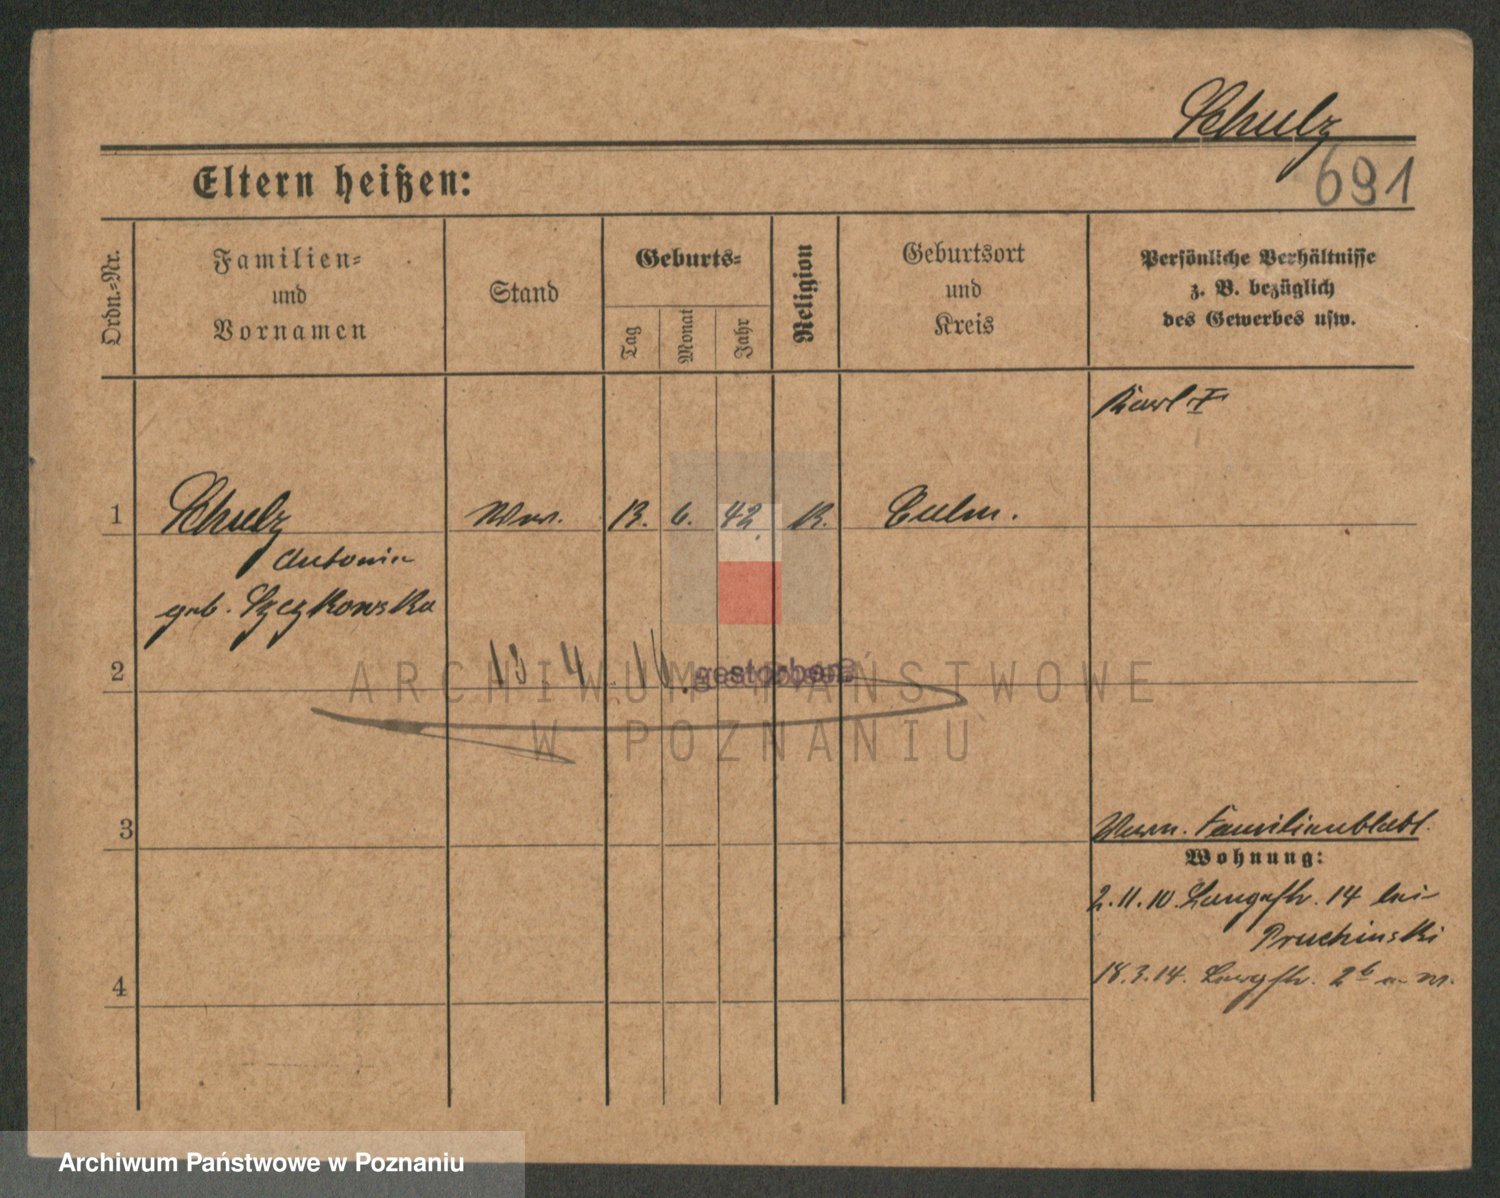 Schulz
691
Eltern heißen:
Ordn.=Nr.
Familien=
und
Vornamen
Stand
Geburts=
Tag
Monat
Jahr
Religion
Geburtsort
und
Kreis
Persönliche Verhältnisse
z. B. bezüglich
des Gewerbes usw.
Karl
1
Schulz
Ww.
13. 6. 42.
K.
Culm.
Antonie
geb. Szczkowska
2
13 4. 16. gestorben
ARCHIWUM PAŃSTWOWE
W POZNANIU
3
Familienblatt.
Wohnung:
2.11.10. Langestr. 14 bei
Pruchinski
4
18.3.14. Langstr. 2b
Archiwum Państwowe w Poznaniu